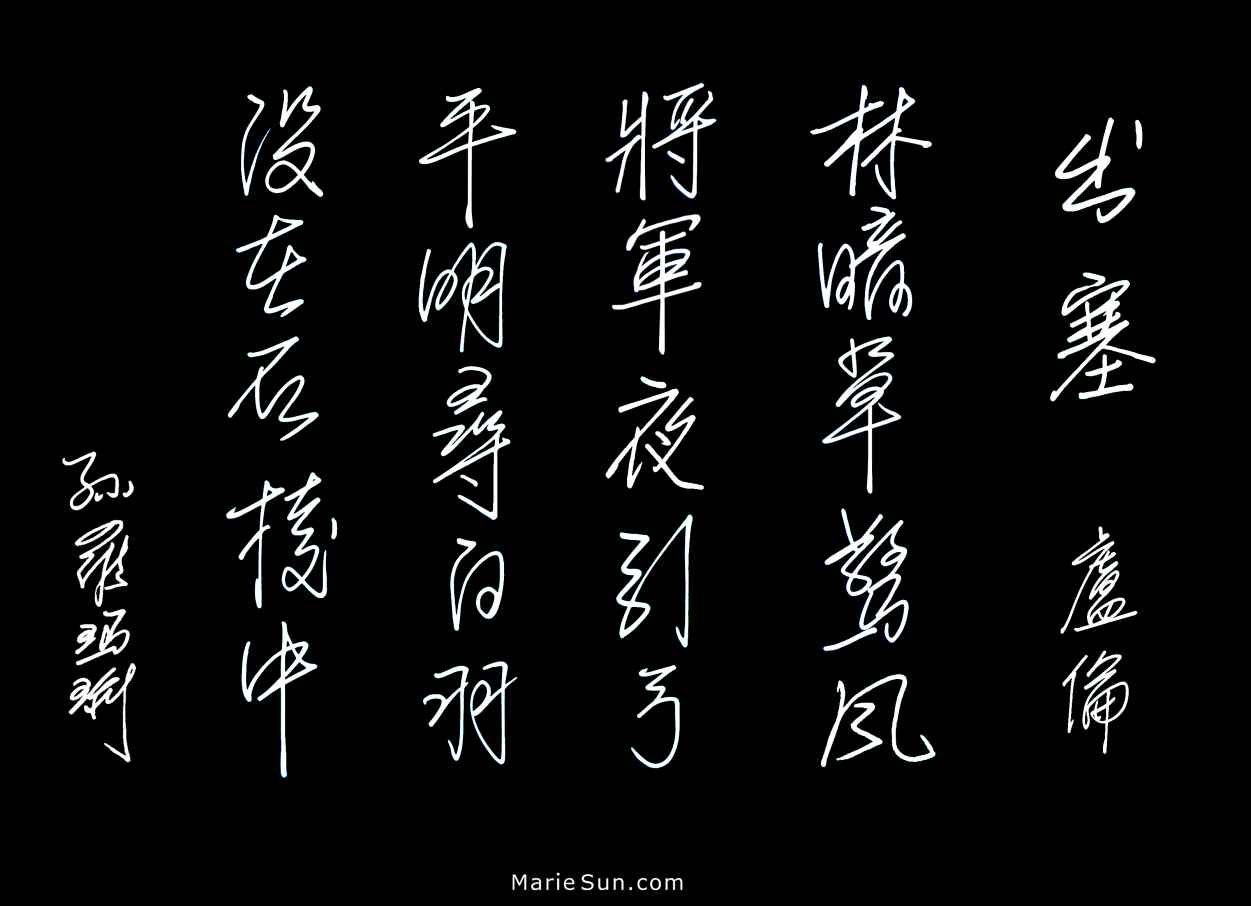 出塞 盧倫
林暗草驚風
將軍夜引弓
平明尋白羽
没在石棱中
孫羅瑪琍
MarieSun.com